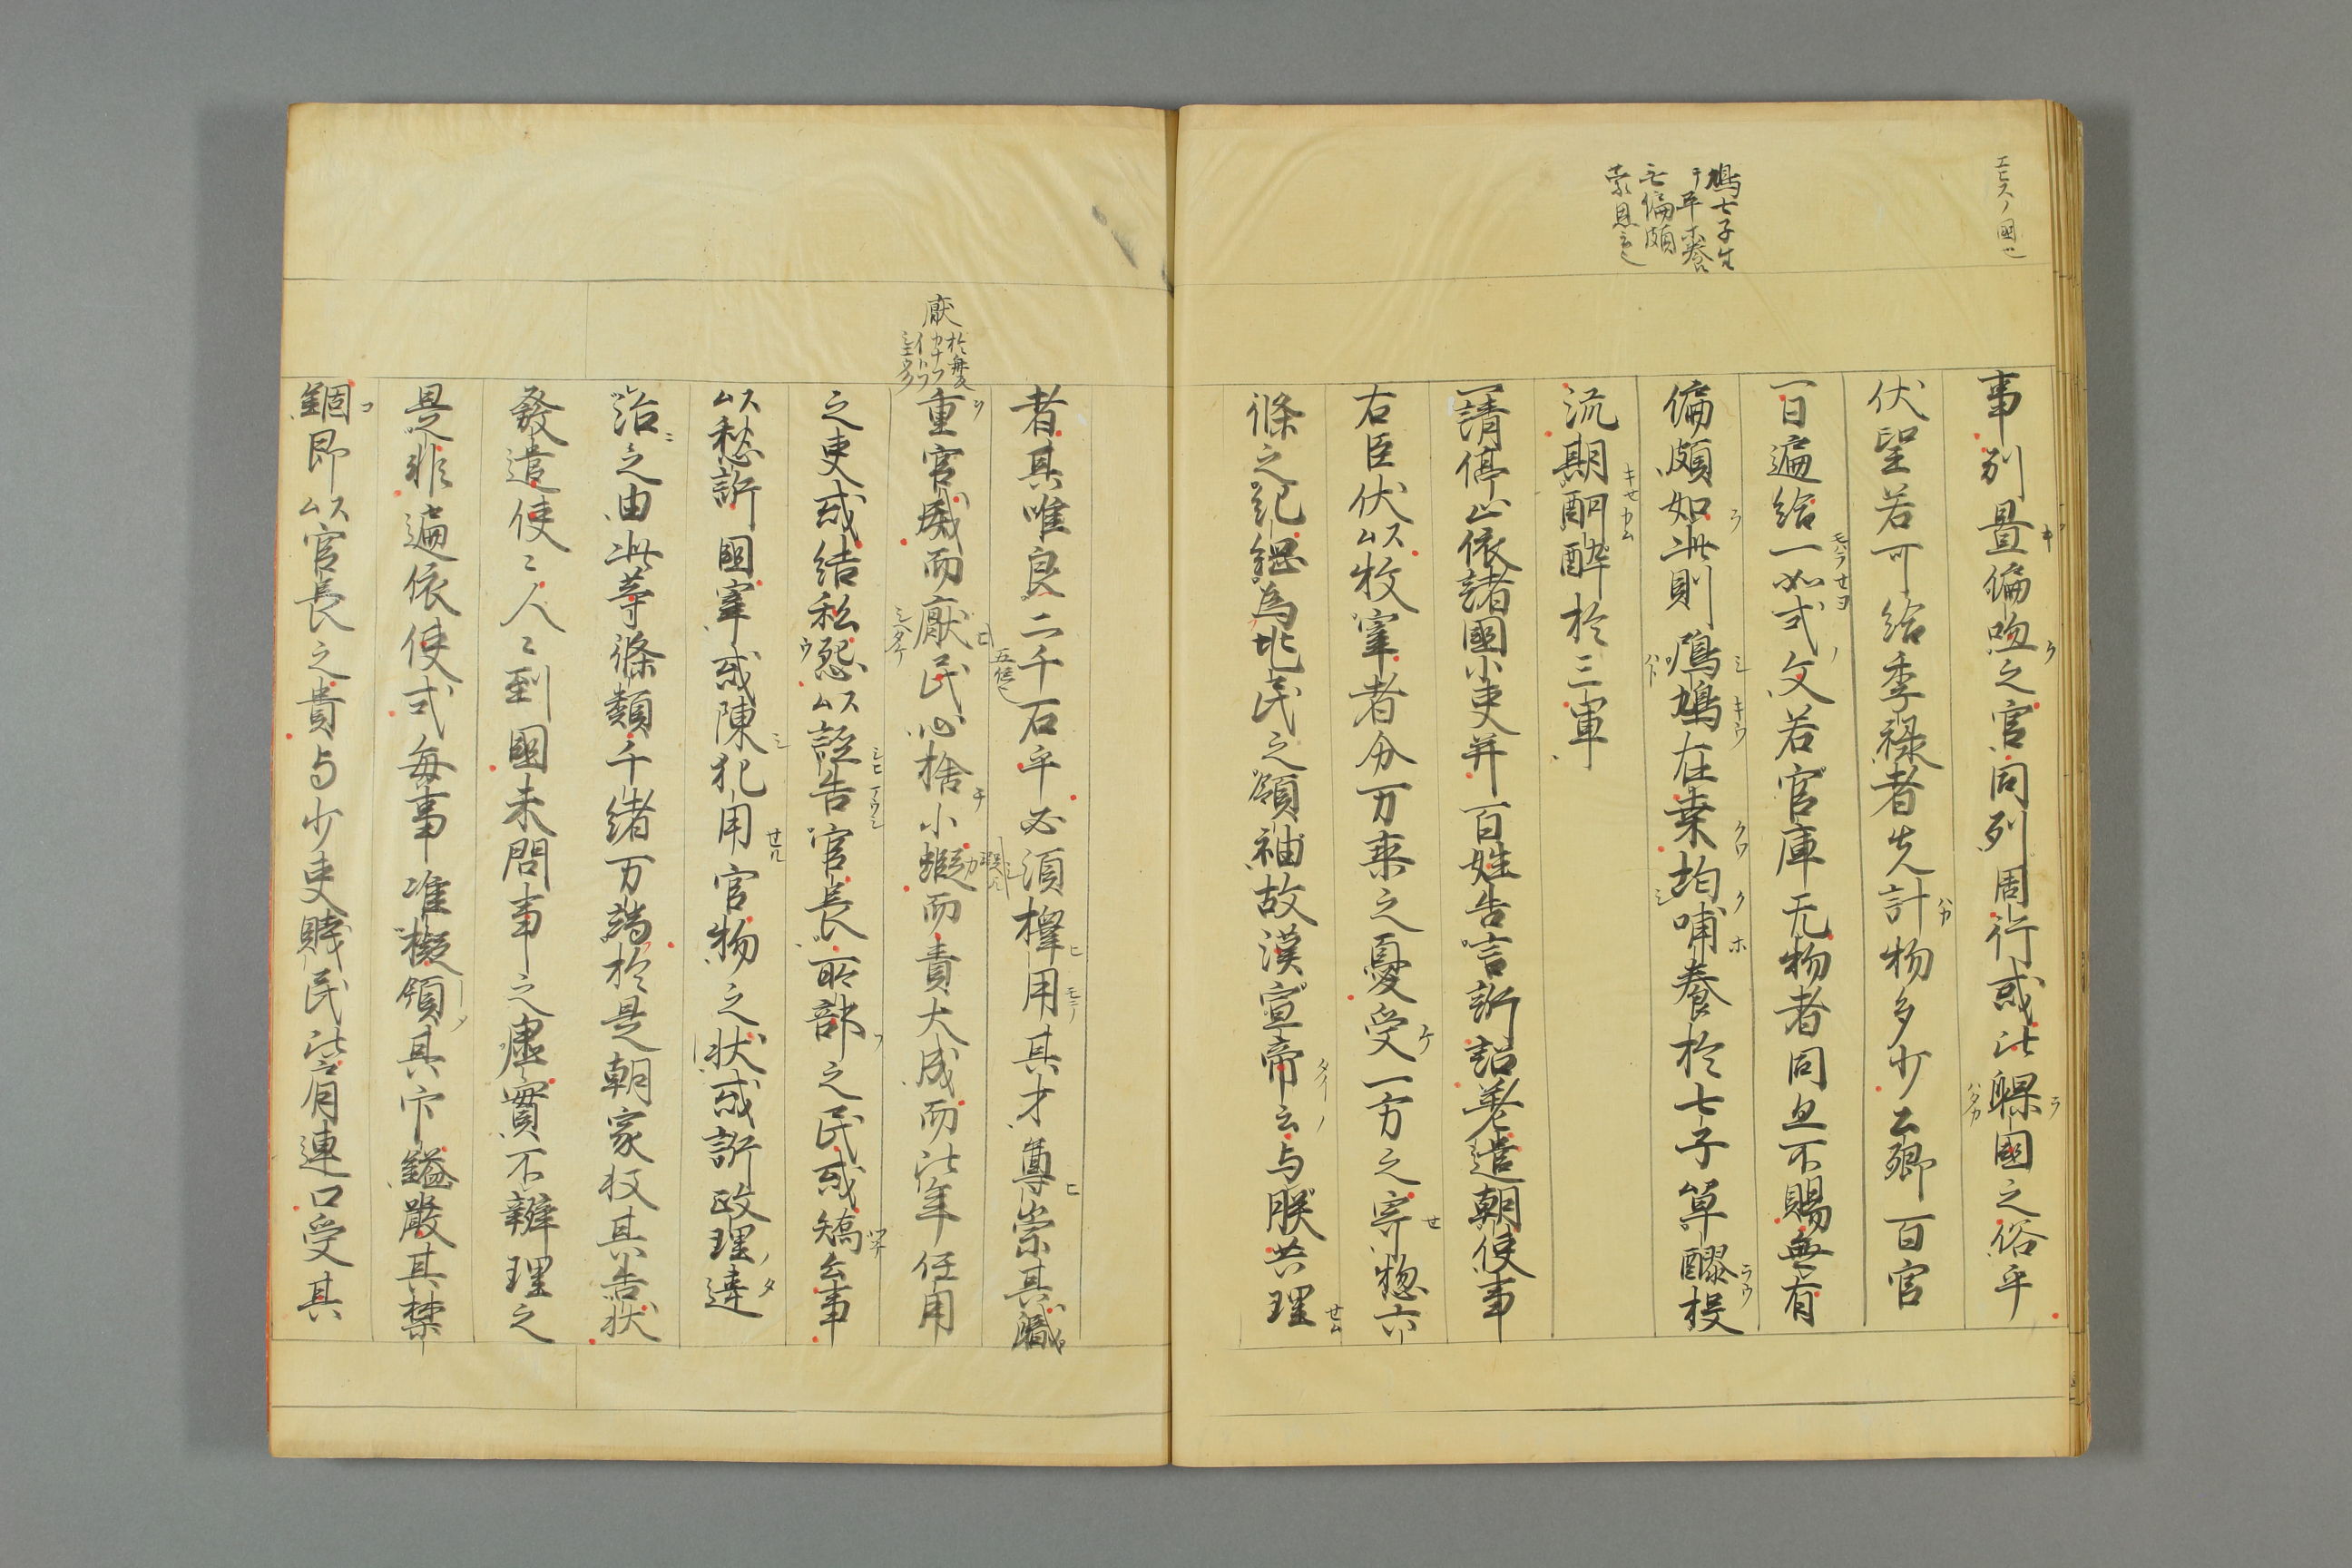 エヒスノ國也
鳩七子生
テ平養
无偏頗
蒙恩之
事別量偏𠮧之官同列周行或比躶國之俗乎
伏望若可給季禄者先計物多少公卿百官
一日遍給一如式文若官庫无物者同忽不賜無有
偏頗如此則鳲鳩在桒均哺養於七子箪醪投
流期酣酔於三軍
一請停止依諸國小吏并百姓告言訴訟差遣朝使事
右臣伏以牧宰者分万乘之憂受一方之寄惣六
條之紀綱為兆民之領袖故漢宣帝云与朕共理
厭
者其唯良二千石乎必須擇用其才尊崇其職
重官威而厭民心捨小瑕而責大成而比年任用
之吏或結私怨以誣告官長所部之民或矯公事
以愁訴國宰或陳犯用官物之状或訴政理違
治之由此等條類千緒万端於是朝家收其告状
發遣使〻人〻到國未問事之虚實不辨理之
是非遍依使式毎事准擬領其印鎰嚴其禁
錮即以官長之貴与少吏賤民比肩連口受其